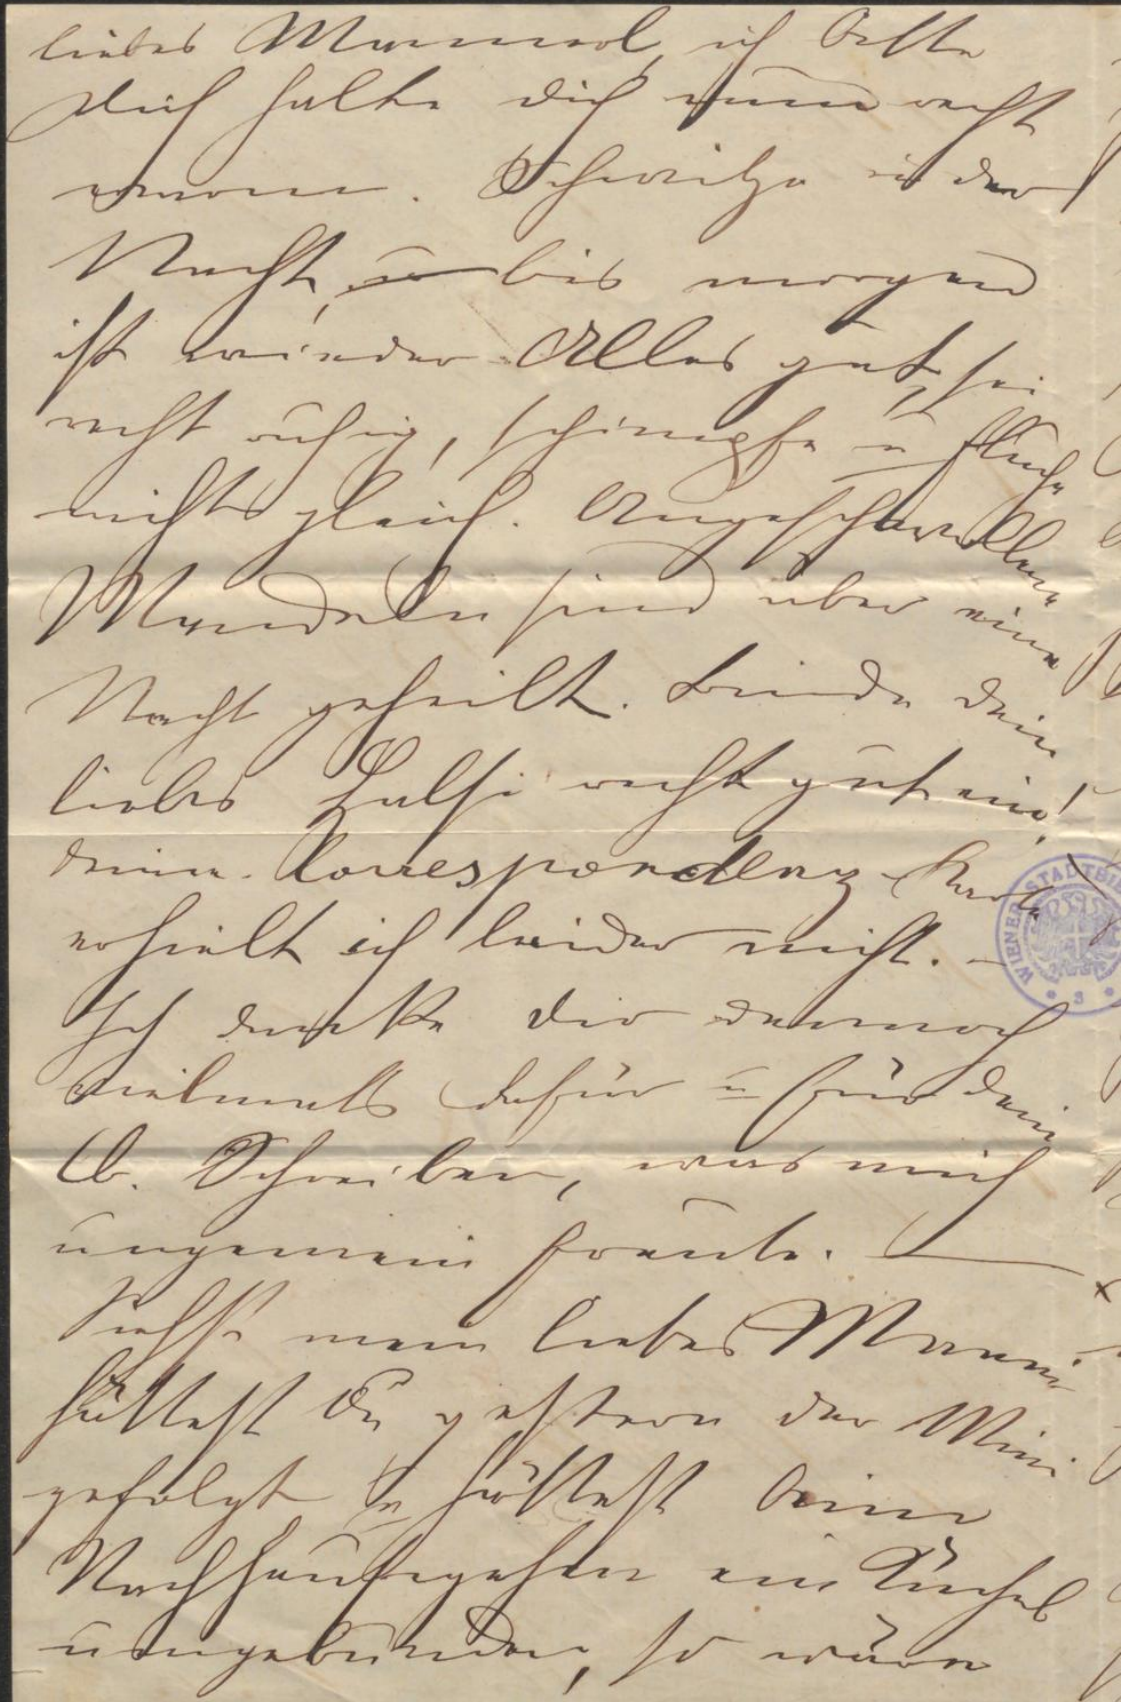 liebes Mannerl, ich bitte
Dich halte dich nur recht
warm. Schwitze in der
Nacht, u bis morgen
ist wieder Alles gut, sei
recht ruhig, schimpfe u fluche
nicht gleich. Angeschwollene
Mandeln sind über eine
Nacht geheilt. Binde dein
liebes Halsi recht gut ein!
deine Correspondenz-Karte
erhielt ich leider nicht. –
Ich danke dir dennoch
vielmals dafür u für dein
lb. Schreiben, was mich
ungemein freute. –
Siehst mein liebes Manni
hättest Du gestern der Mini
gefolgt u hättest beim
Nachhausegehen ein Tüchel
umgebunden, so wäre
WIENER STADTBI
3